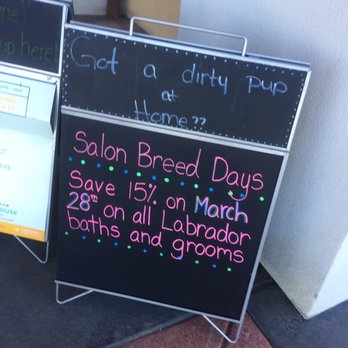 Got a dirty pup
at
Home??
Salon Breed Days
Save 15% on March
28th on all Labrador
baths and grooms
me?
up here!